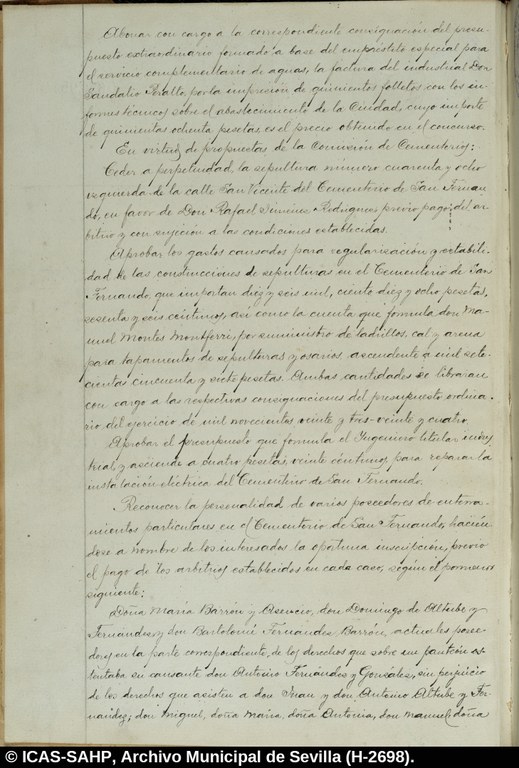 Abonar con cargo a la correspondiente consignación del presu-
puesto extraordinario formado a base del empréstito especial para
el servicio complementario de aguas, la factura del industrial Don
Sandalio Peralto, por la impresión de quinientos folletos con los in-
formes técnicos sobre el abastecimiento de la Ciudad, cuyo importe
de quinientas ochenta pesetas, es el precio obtenido en el concurso.
En virtud de propuestas de la Comisión de Cementerios:
Ceder a perpetuidad, la sepultura número cuarenta y ocho
izquierda de la calle San Vicente del Cementerio de San Fernan-
do, en favor de Don Rafael Jiménez Rodríguez, previo pago del ar-
bitrio y con sujeción a las condiciones establecidas.
Aprobar los gastos causados para regularización y estabili-
dad de las construcciones de sepulturas en el Cementerio de San
Fernando, que importan diez y seis mil, ciento diez y ocho pesetas,
sesenta y seis céntimos; así como la cuenta que formula don Ma-
nuel Montes Montferri, por suministro de ladrillos, cal y arena
para tapamentos de sepulturas y osarios, ascendente a mil sete-
cientas cincuenta y siete pesetas. Ambas cantidades se libraran
con cargo a las respectivas consignaciones del presupuesto ordina-
rio del ejercicio de mil novecientos veinte y tres-veinte y cuatro.
Aprobar el presupuesto que formula el Ingeniero titular indus-
trial, y asciende a cuatro pesetas, veinte céntimos, para reparar la
instalación eléctrica del Cementerio de San Fernando.
Reconocer la personalidad de varios poseedores de enterra-
mientos particulares en el Cementerio de San Fernando, hacién-
dose a nombre de los interesados la oportuna inscripción, previo
el pago de los arbitrios establecidos en cada caso, según el pormenor
siguiente:
Doña María Barrón y Asencio, don Domingo de Altube y
Fernández y don Bartolomé Fernández Barrón, actuales posee-
dores en la parte correspondiente, de los derechos que sobre un panteón os-
tentaba su causante don Antonio Fernández y González, sin perjuicio
de los derechos que asisten a don Juan y don Antonio Altube y Fer-
nández; don Miguel, doña María, doña Antonia, don Manuel, doña
© ICAS-SAHP, Archivo Municipal de Sevilla (H-2698).